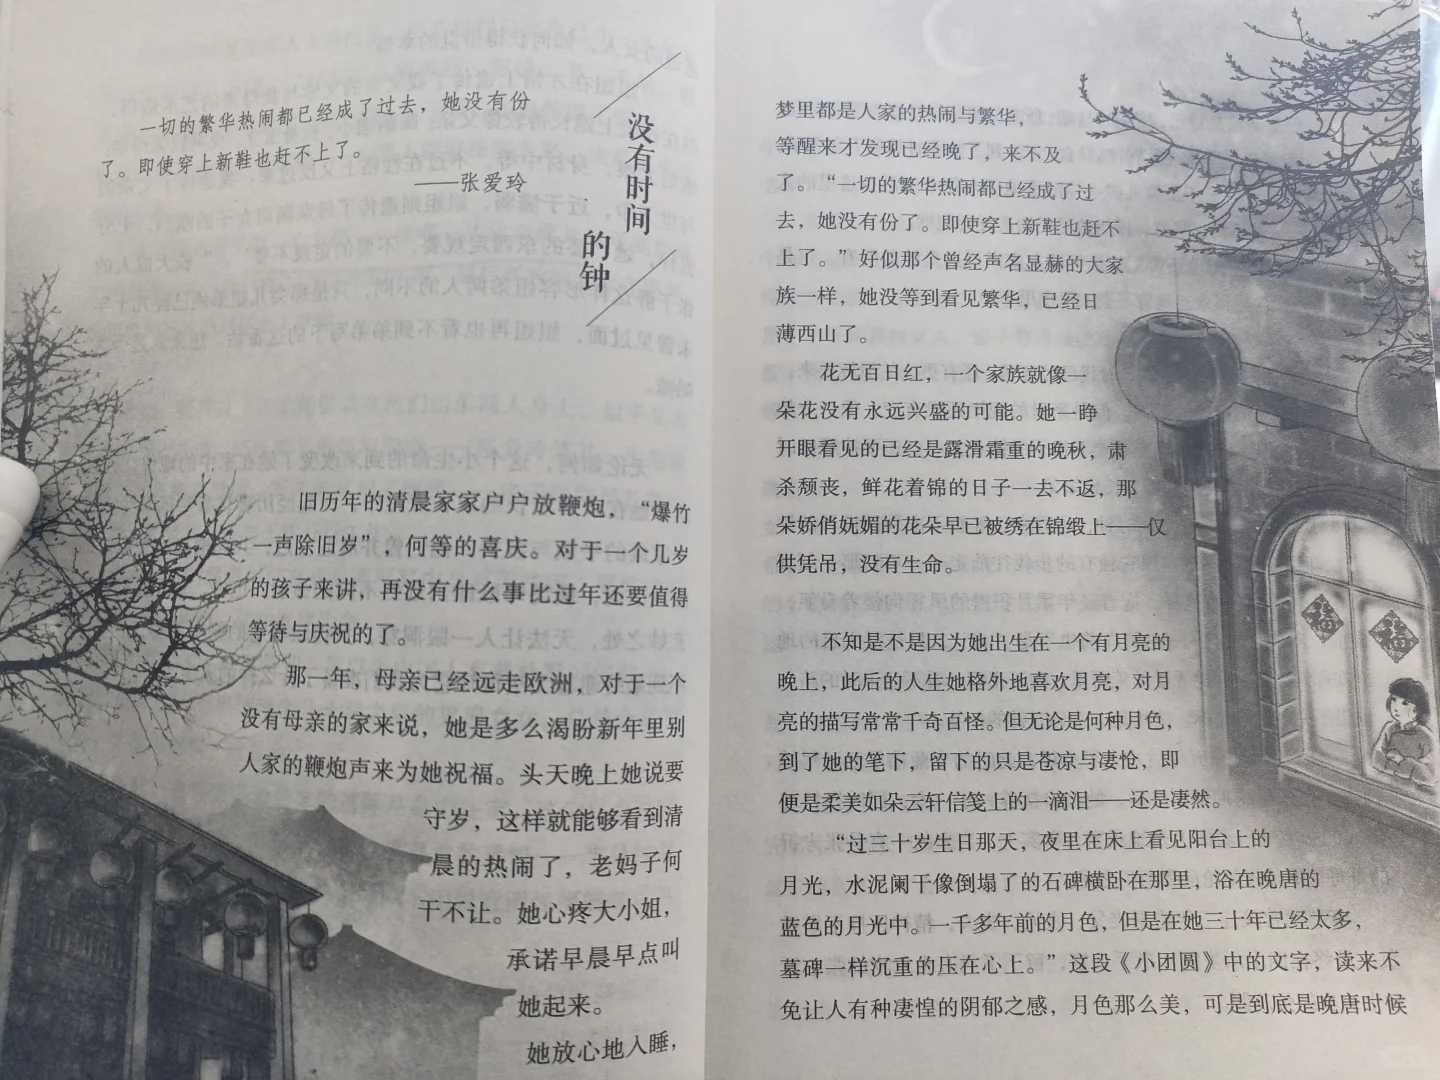 一切的繁华热闹都已经成了过去，她没有份
了。即使穿上新鞋也赶不上了。
——张爱玲
没有时间
的钟
旧历年的清晨家家户户放鞭炮，“爆竹
一声除旧岁”，何等的喜庆。对于一个几岁
的孩子来讲，再没有什么事比过年还要值得
等待与庆祝的了。
那一年，母亲已经远走欧洲，对于一个
没有母亲的家来说，她是多么渴盼新年里别
人家的鞭炮声来为她祝福。头天晚上她说要
守岁，这样就能够看到清
晨的热闹了，老妈子何
干不让。她心疼大小姐，
承诺早晨早点叫
她起来。
她放心地入睡，
梦里都是人家的热闹与繁华，
等醒来才发现已经晚了，来不及
了。“一切的繁华热闹都已经成了过
去，她没有份了。即使穿上新鞋也赶不
上了。”好似那个曾经声名显赫的大家
族一样，她没等到看见繁华，已经日
薄西山了。
花无百日红，一个家族就像一
朵花没有永远兴盛的可能。她一睁
开眼看见的已经是露滑霜重的晚秋，肃
杀颓丧，鲜花着锦的日子一去不返，那
朵娇俏妩媚的花朵早已被绣在锦缎上——仅
供凭吊，没有生命。
不知是不是因为她出生在一个有月亮的
晚上，此后的人生她格外地喜欢月亮，对月
亮的描写常常千奇百怪。但无论是何种月色，
到了她的笔下，留下的只是苍凉与凄怆，即
便是柔美如朵云轩信笺上的一滴泪——还是凄然。
“过三十岁生日那天，夜里在床上看见阳台上的
月光，水泥阑干像倒塌了的石碑横卧在那里，浴在晚唐的
蓝色的月光中。一千多年前的月色，但是在她三十年已经太多，
墓碑一样沉重的压在心上。”这段《小团圆》中的文字，读来不
免让人有种凄惶的阴郁之感，月色那么美，可是到底是晚唐时候